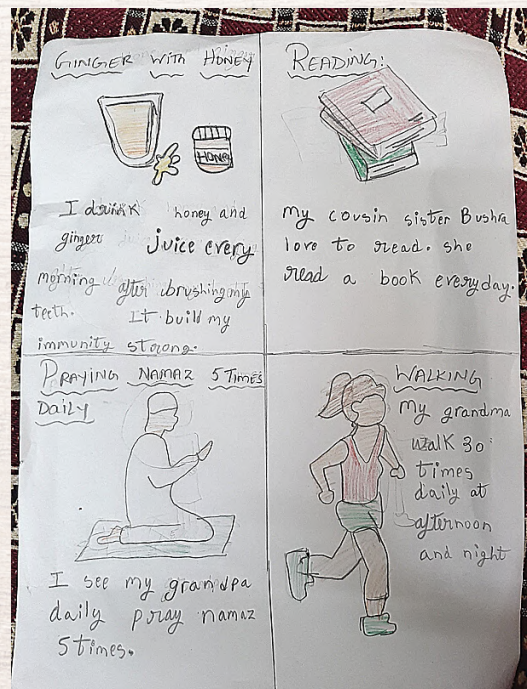 GINGER WITH HONEY
HONEY
I drink honey and
ginger juice every
morning after brushing my
teeth. It build my
immunity strong.
READING:
My cousin sister Bushra
love to read. she
read a book everyday.
PRAYING NAMAZ 5 TIMES
DAILY
I see my grandpa
daily pray namaz
5 times.
WALKING
My grandma
walk 30
times
daily at
afternoon
and night